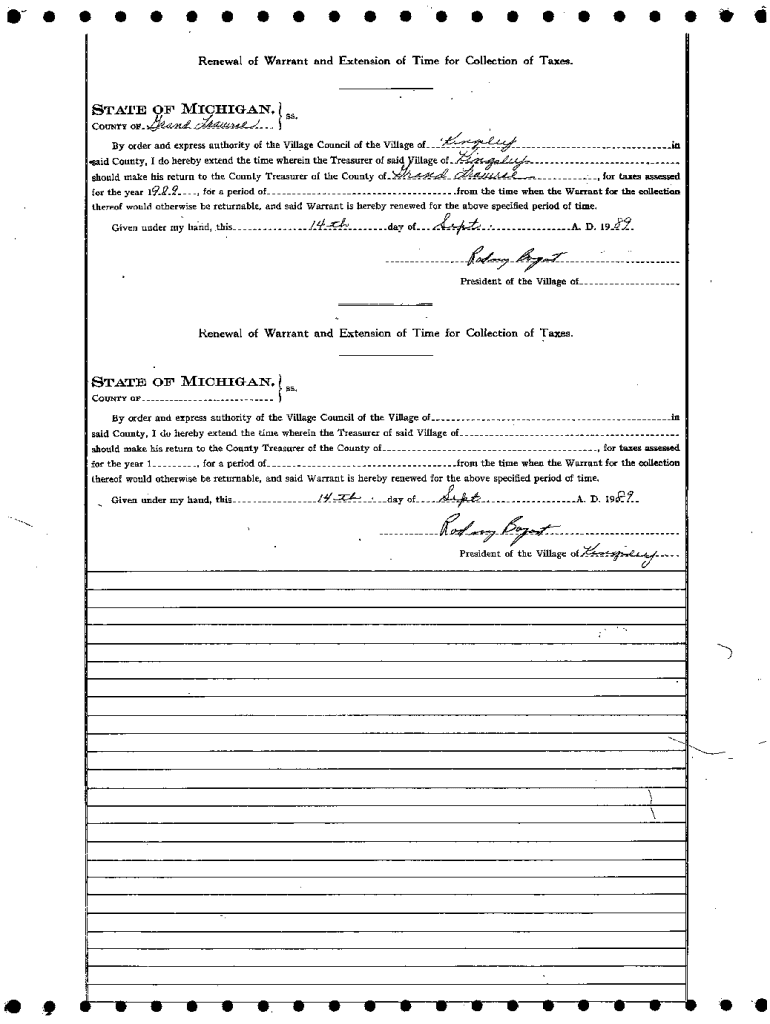 Renewal of Warrant and Extension of Time for Collection of Taxes.
STATE OF MICHIGAN. } ss.
COUNTY OF Grand Traverse
By order and express authority of the Village Council of the Village of Kingsley in
said County, I do hereby extend the time wherein the Treasurer of said Village of Kingsley
should make his return to the County Treasurer of the County of Grand Traverse, for taxes assessed
for the year 1989, for a period of from the time when the Warrant for the collection
thereof would otherwise be returnable, and said Warrant is hereby renewed for the above specified period of time.
Given under my hand, this 14th day of Sept. A. D. 1989.
Rodney Bogart
President of the Village of
Renewal of Warrant and Extension of Time for Collection of Taxes.
STATE OF MICHIGAN. } ss.
COUNTY OF
By order and express authority of the Village Council of the Village of in
said County, I do hereby extend the time wherein the Treasurer of said Village of
should make his return to the County Treasurer of the County of, for taxes assessed
for the year 1, for a period of from the time when the Warrant for the collection
thereof would otherwise be returnable, and said Warrant is hereby renewed for the above specified period of time.
Given under my hand, this 14th day of Sept A. D. 1989.
Rodney Bogart
President of the Village of Kingsley